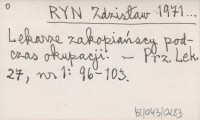 0
RYN Zdzisław 1971...
Lekarze zakopiańscy pod-
czas okupacji. — Prz. Lek.
27, nr 1: 96-103.